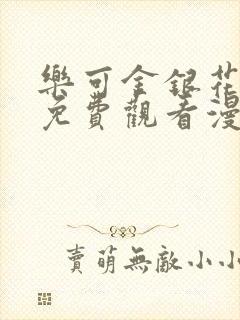 樂可金銀花
免費觀看漫
賣萌無敵小小